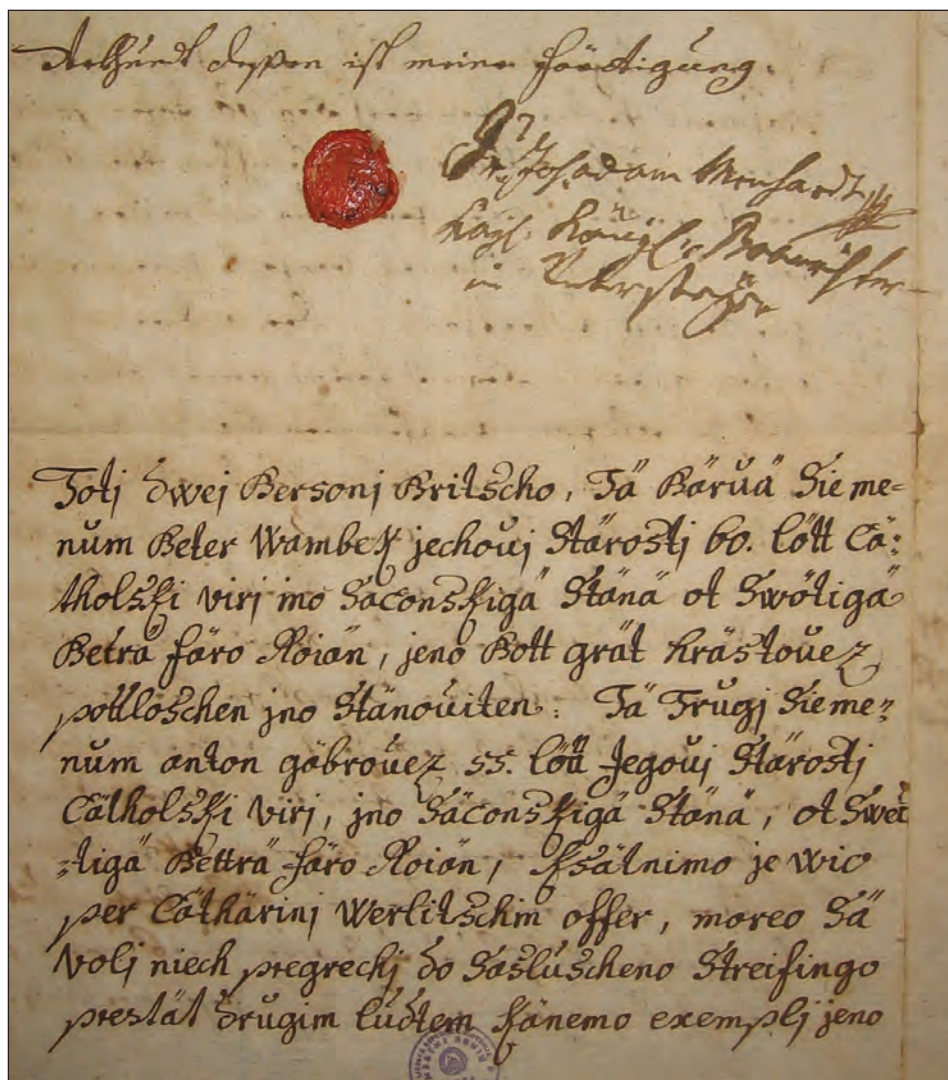 Uhrkundt dessen ist meine Förttigung.
Joh. adam Menhardt
Kay: Königl: Bannrichter
in
Totj dwej Personj Britscho, Tä Bäruä Sie me=
num Peter Wambek jechouj Stärostj 60. lött Cä:
tholski virj ino Saconskigä Stänä ot Swötigä
Peträ färo Roiän, jeno Pott grät Krästouez
pottloschen jno Stänouiten: Tä Trugj Sie me=
num anton gäbrouez 55. lött Jegouj Stärostj
Cätholski virj, jno Säconskigä Stänä, ot Swei
=tigä Petträ färo Roiän, ksätnimo je wio
per Cäthärinj Werlitschin offer, moreo Sä
volj niech pregrechj do Sasluscheno Streifingo
prestät drugim ludtem känemo exemplj jeno